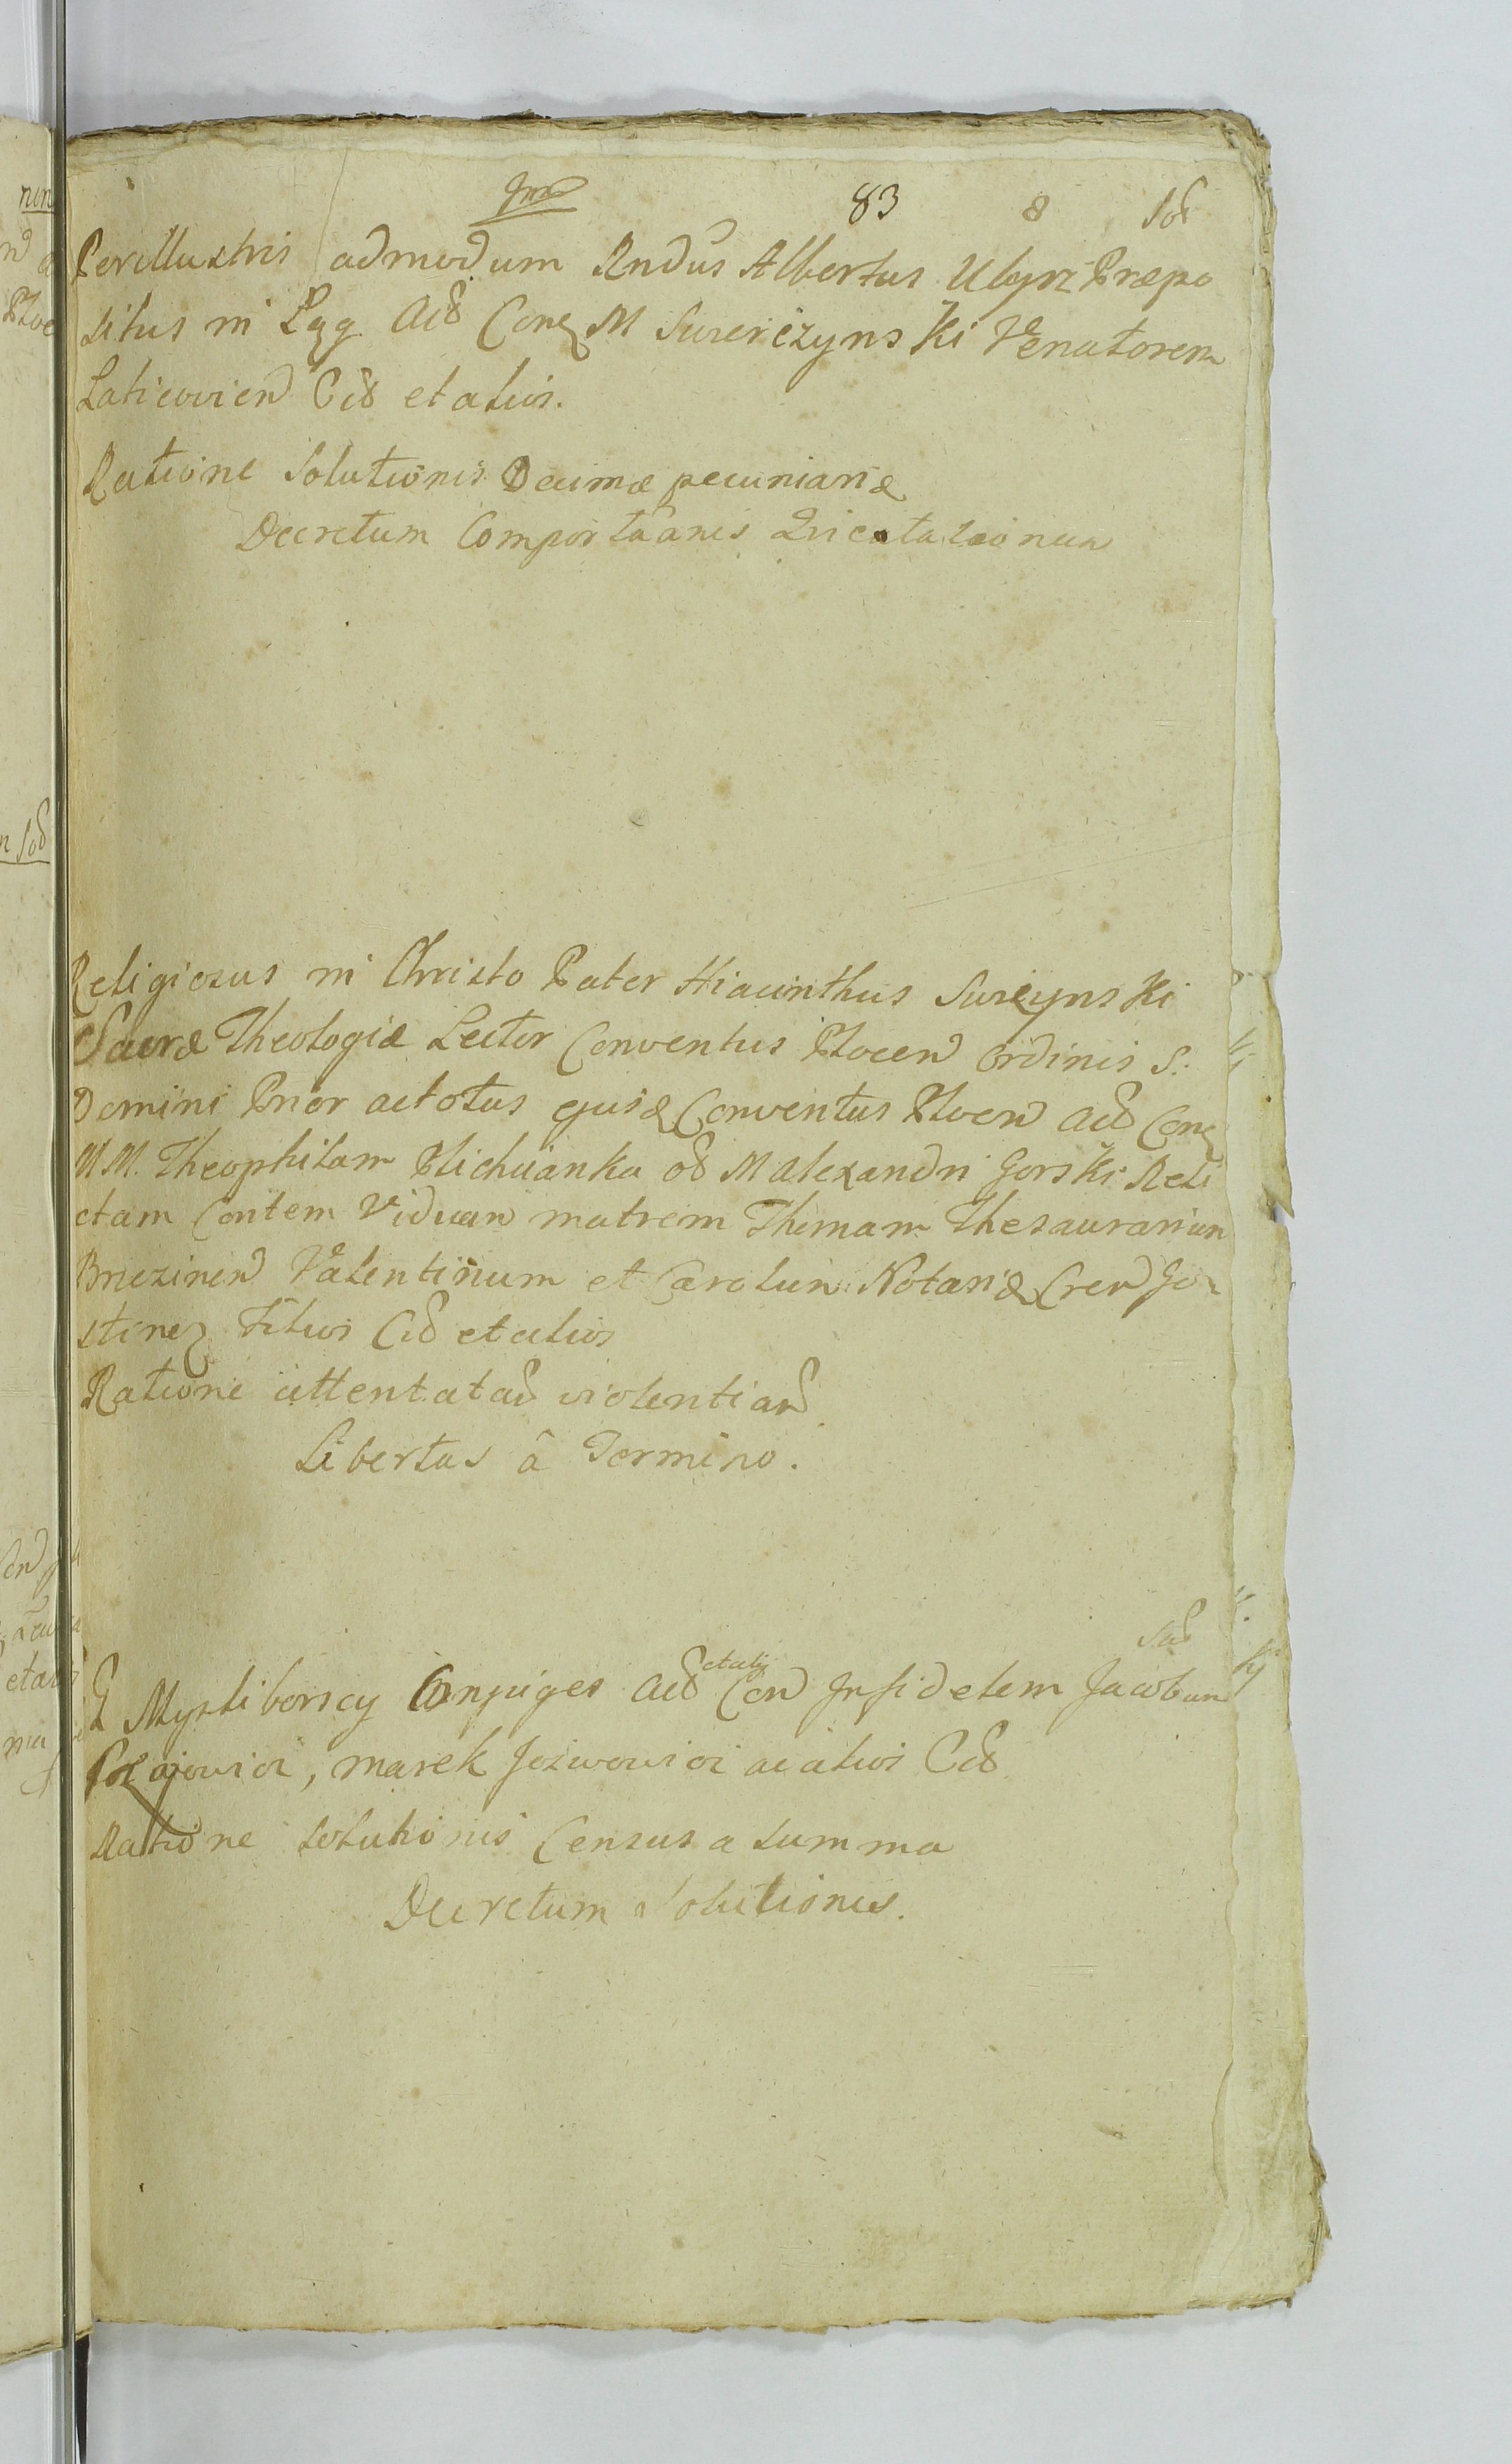 83 8 Sol
Perillustris admodum Rndus Albertus Ulyrz Præpo
situs in Lgg. Acd Conq M Swierczynski Venatorem
Laticovien Cid et alios.
Ratione Solutionis Decimæ pecuniariæ
Decretum Comportaanis Quietationum
Religiosus in Christo Pater Hiacinthus Swizynski
Sacræ Theologiæ Lector Conventus Plocen Ordinis S.
Domini Prior ac totus ejusd Conventus Plocen Acd Conq
M M. Theophilam Plichcianka od M Alexandri Gorski Reli
ctam Contem Viduam matrem Thomam Thesaurarium
Brzezinen Valentinum et Carolum Notariæ Cren Go
stinen Filios Cid et alios
Ratione attentatad violentiard
Libertas â Termino.
Mysliborscy Conjuges Acd et alij Con Infidelem Jacobum
, Marek Jozwowicz ac alios Cid
Ratione Solutionis Census a Summa
Decretum Solutionis.